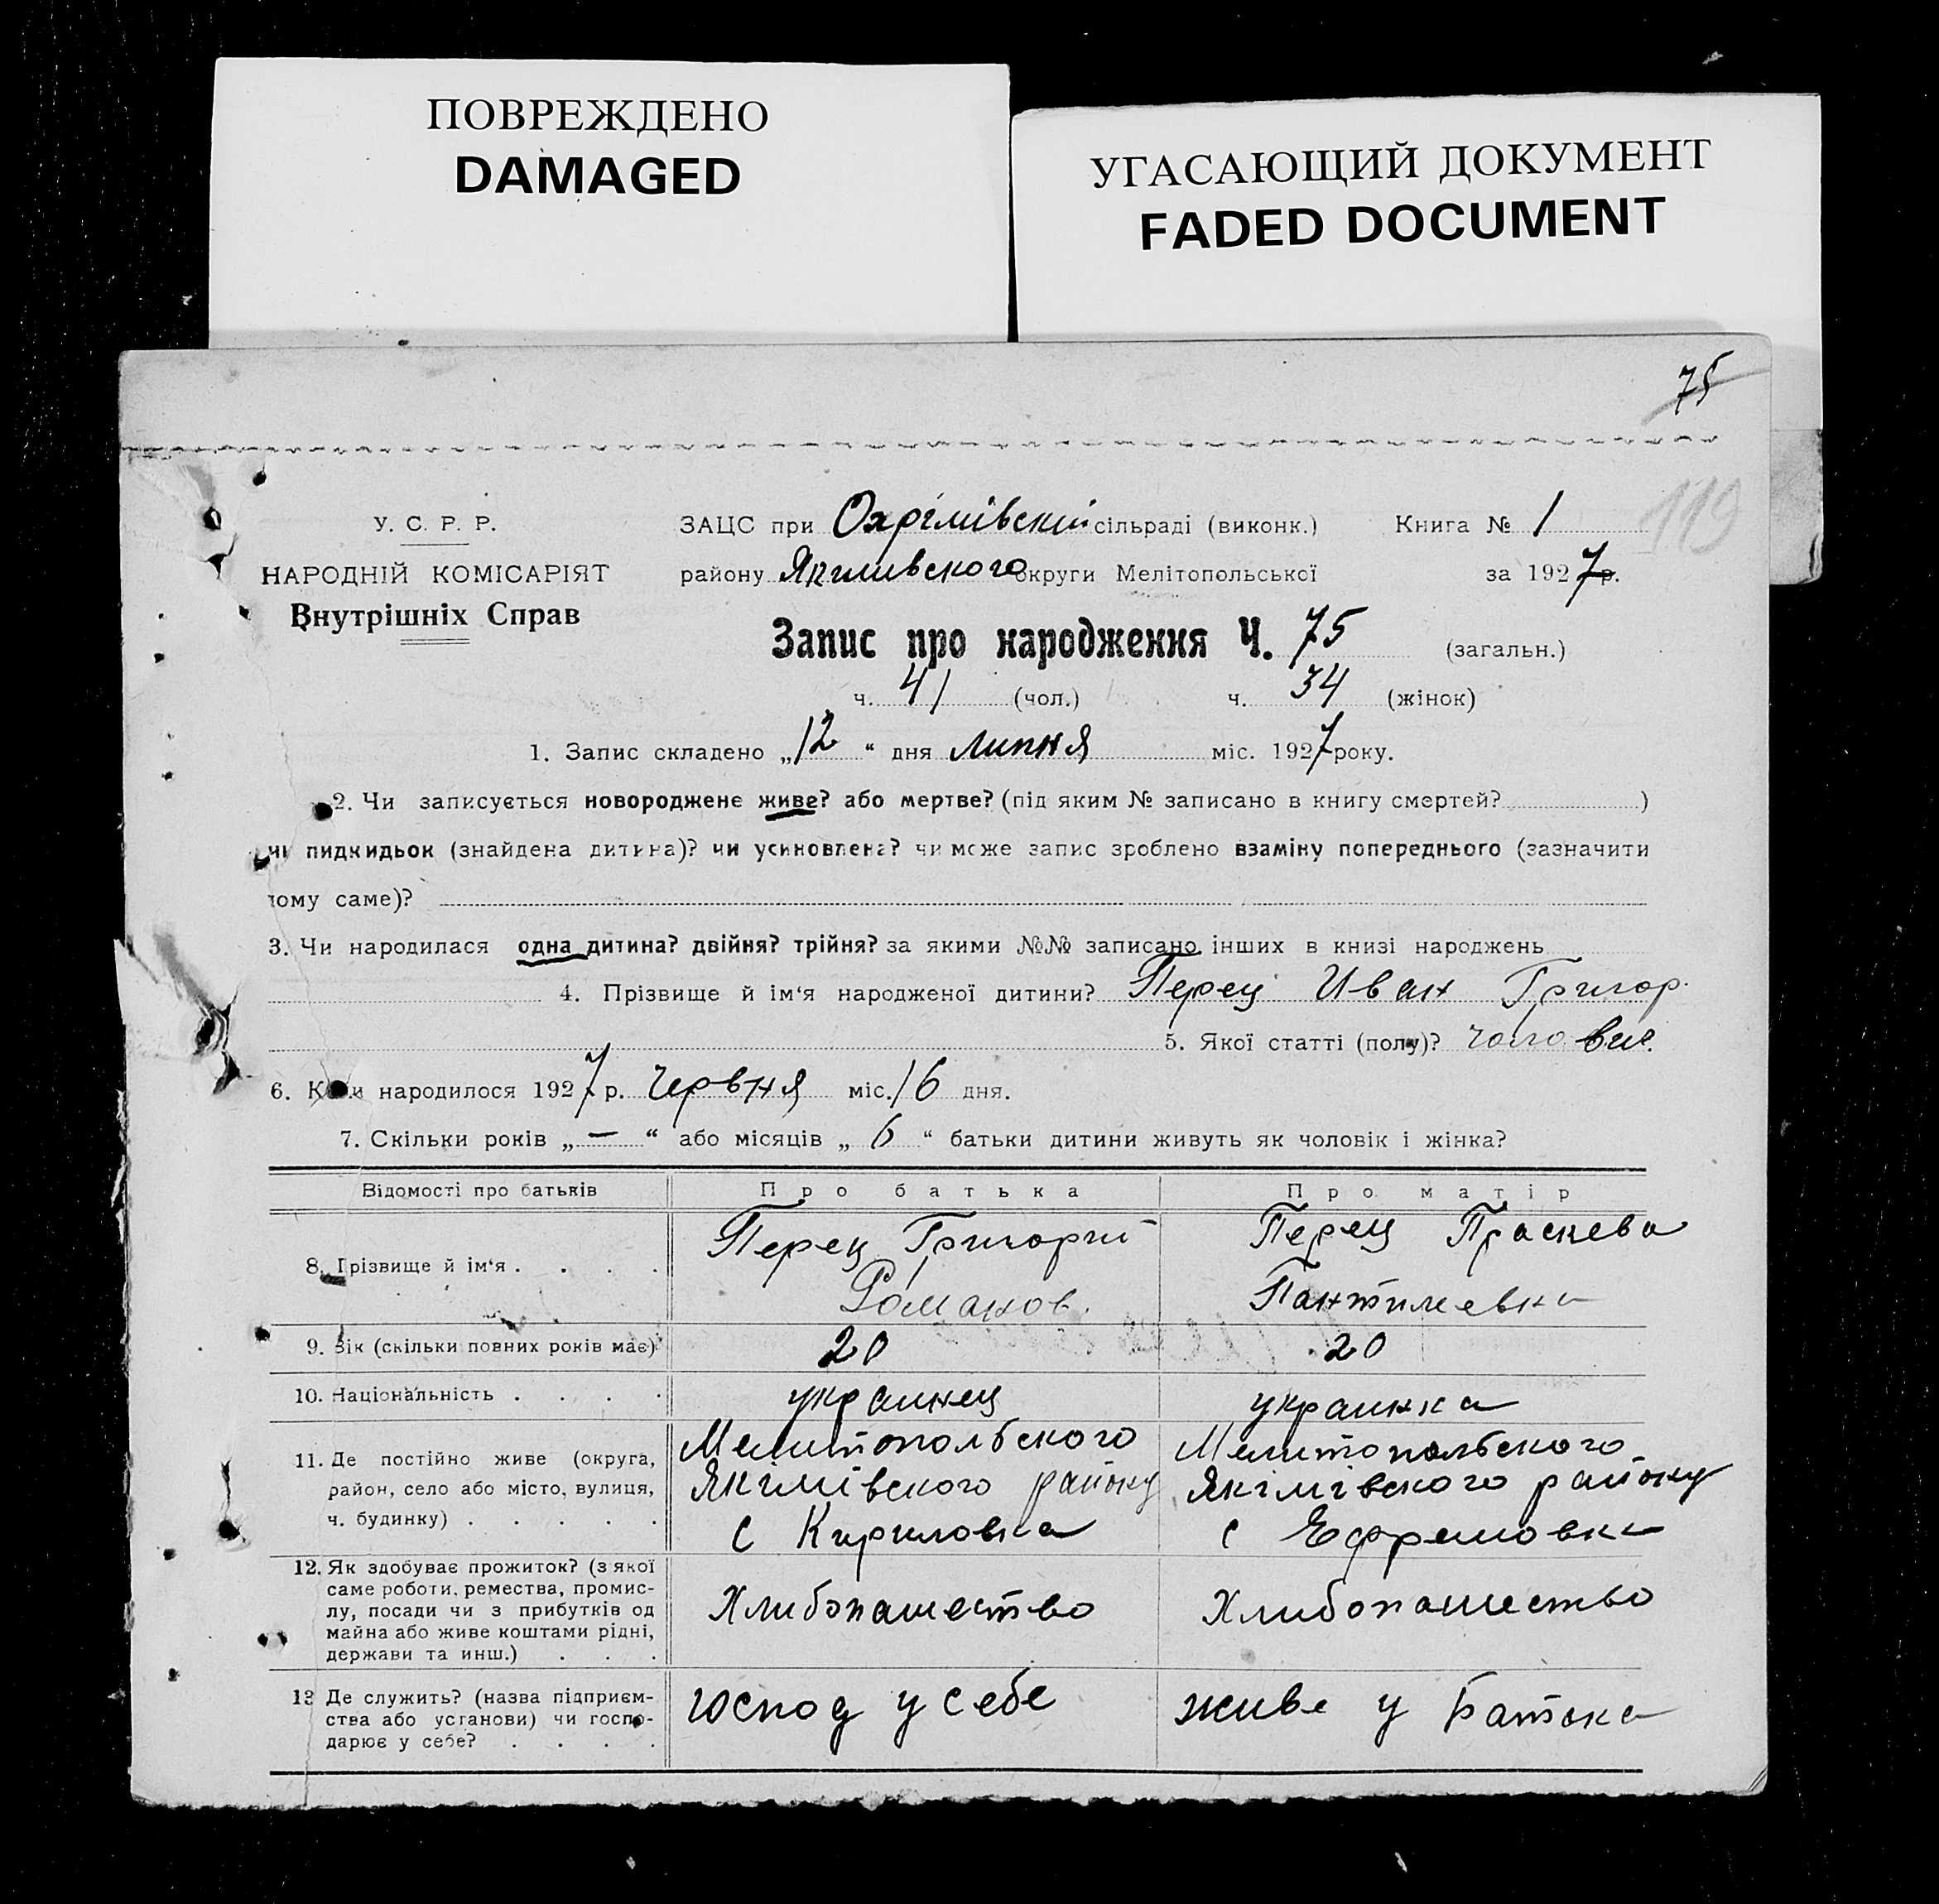 ПОВРЕЖДЕНО
DAMAGED
УГАСАЮЩИЙ ДОКУМЕНТ
FADED DOCUMENT
75
119
У. С. Р. Р.
НАРОДНІЙ КОМІСАРІЯТ
Внутрішніх Справ
ЗАЦС при Охрімівській сільраді (виконк.) Книга № 1
району Якимивского округи Мелітопольської за 1927 р.
Запис про народження Ч. 75 (загальн.)
ч. 41 (чол.) ч. 34 (жінок)
1. Запис складено „12“ дня липня міс. 1927 року.
2. Чи записується новороджене живе? або мертве? (під яким № записано в книгу смертей? )
чи пидкидьок (знайдена дитина)? чи усиновлена? чи може запис зроблено взаміну попереднього (зазначити
чому саме)?
3. Чи народилася одна дитина? двійня? трійня? за якими №№ записано інших в книзі народжень
4. Прізвище й ім'я народженої дитини? Перец Иван Григор.
5. Якої статті (полу)? чолович.
6. Коли народилося 1927 р. червня міс. 16 дня.
7. Скільки років „—“ або місяців „6“ батьки дитини живуть як чоловік і жінка?
Відомості про батьків Про батька Про матір
8. Прізвище й ім'я . . . . Перец Григорий Романов. Перец Праскева Пантилеевна
9. Вік (скільки повних років має) 20 20
10. Національність . . . . украинец украинка
11. Де постійно живе (округа, район, село або місто, вулиця, ч. будинку) . . . . . Мелитопольского Якімівского району с Кириловка Мелитопольского Якімівского району с Ефремовка
12. Як здобуває прожиток? (з якої саме роботи, ремества, промислу, посади чи з прибутків од майна або живе коштами рідні, держави та инш.) . . . Хлибопашество Хлибопашество
13 Де служить? (назва підприємства або установи) чи господарює у себе? . . . . господ у себе живе у Батька